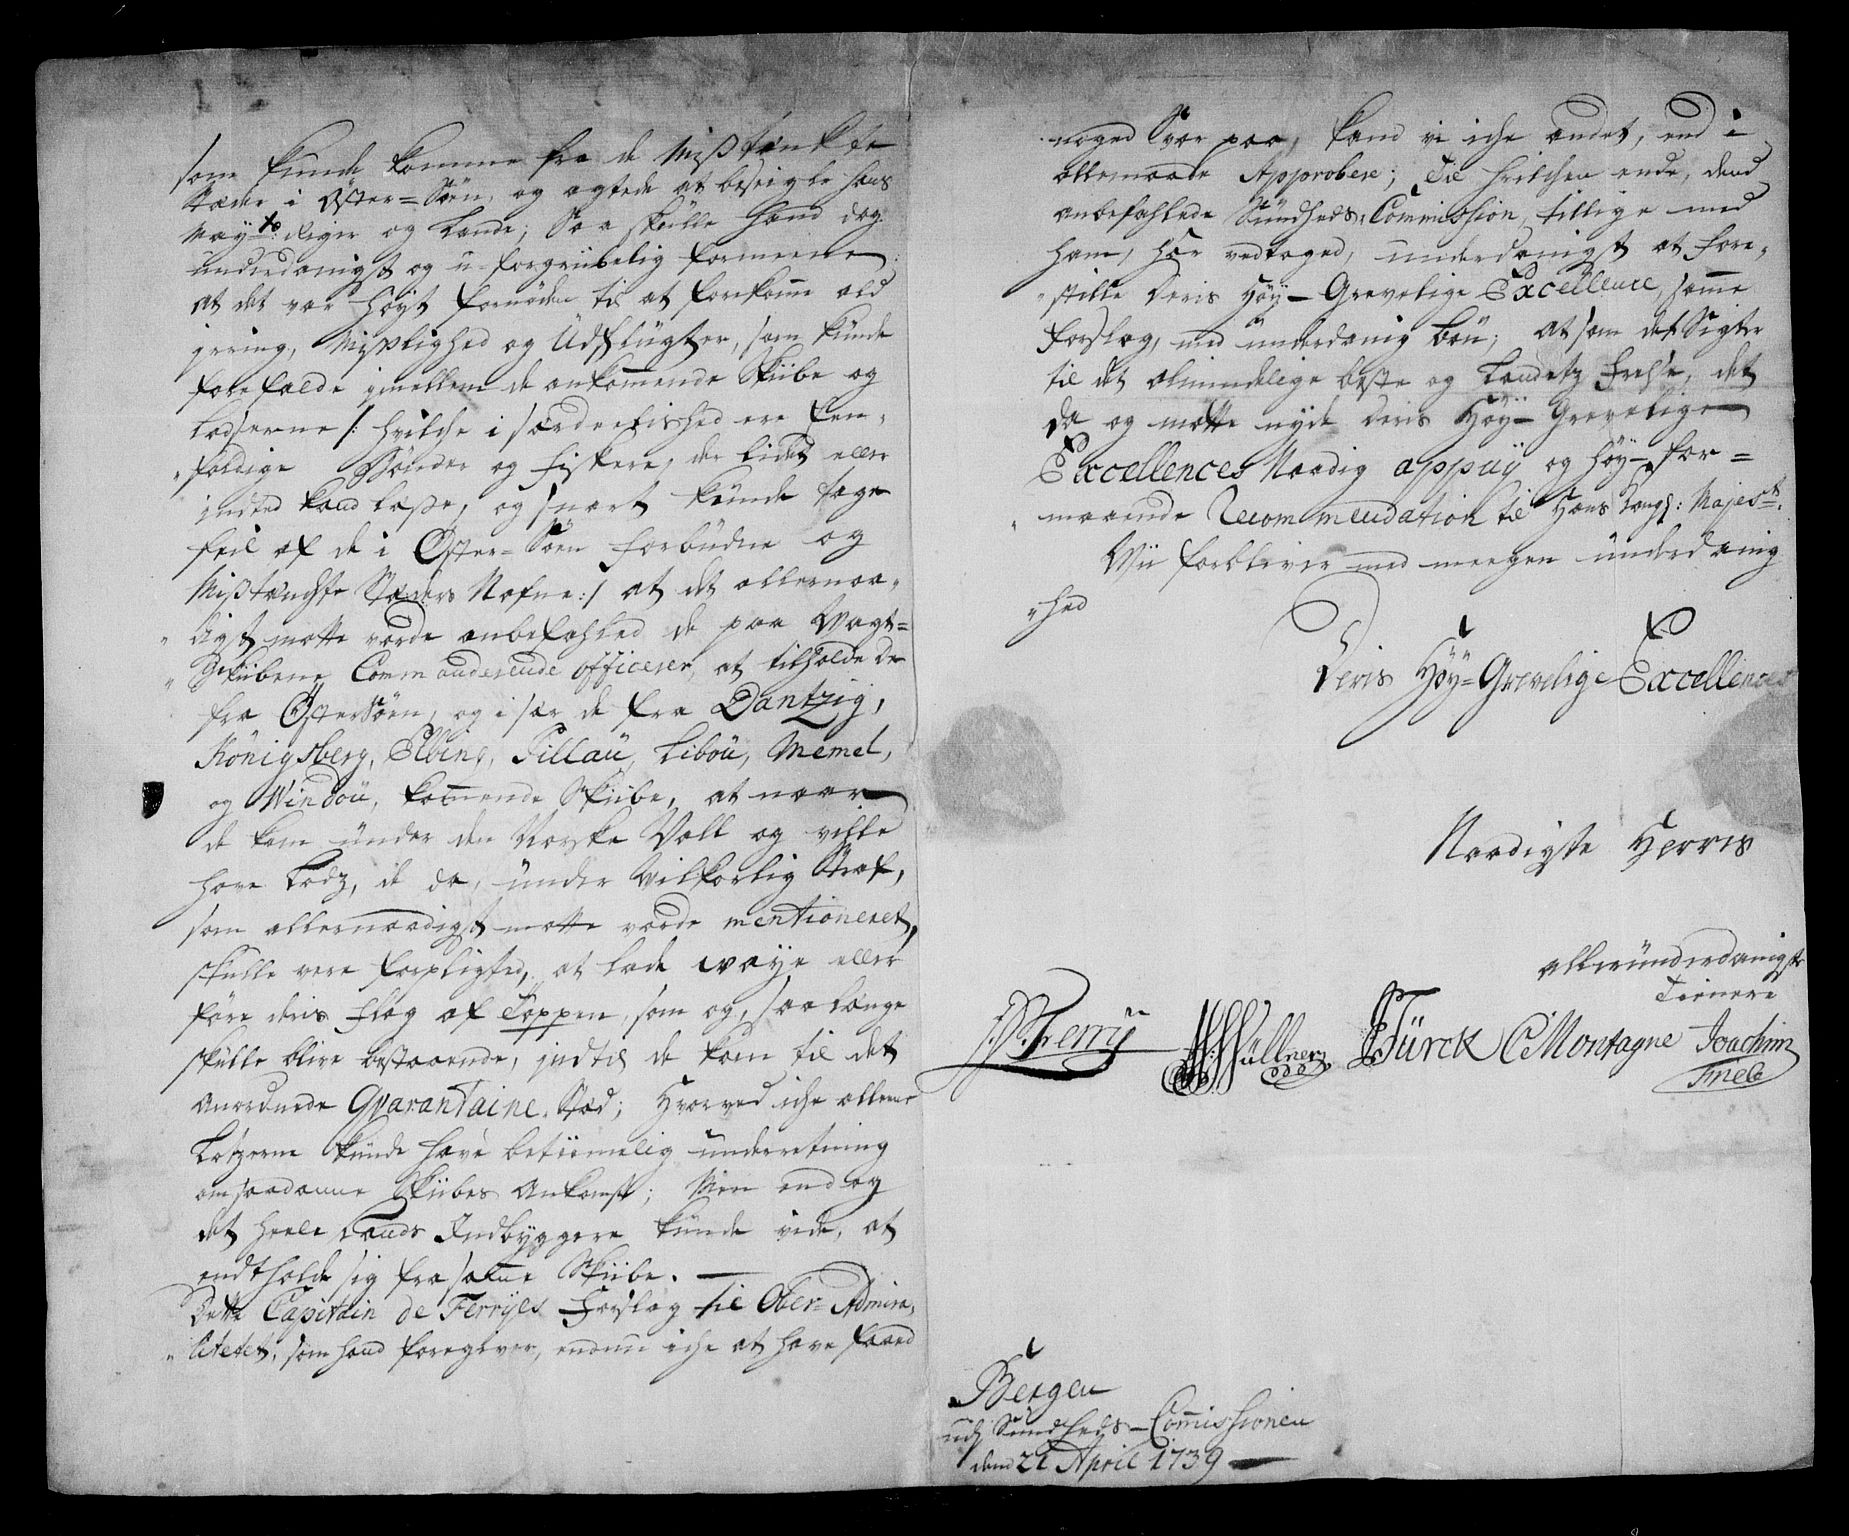 som kunde komme fra de Mißtænkte
Stæder i Øster=Søen, og agtede at beseigle hans
Mayts Riger og Lande; Saa skulle hand dog
underdanigst og u-forgribelig formeene
at det var høyt fornøden til at forekomme ald
irring, Mißlighed og Udflugter, som kunde
forefalde imellem de ankommende Skibe og
Lodserne /: hvilche i særdeelished ere Een-
"foldige Bønder og Fiskere, der lidet eller
indted kand læße, og snart kunde tage
feil af de i Øster=Søen forbudne og
Mißtænchte Stæders Nafne :/ at det allernaa-
"digst motte vorde anbefahled de paa Vagt=
"Skibene Commanderende officerer, at tilholde de
fra ØsterSøen, og i sær de fra Dantzig,
Königsberg, Elbing, Pillau, Libou, Memel,
og Windou, kommende Skibe, at naar
de kom under den Norske Vall og ville
have Lodz, de da, under Vilkorlig Straf,
som allernaadigst motte vorde mentioneret,
skulle være forpligted, at lade waye eller
føre deris Flag af Toppen, som og, saa længe
skulle blive bestaaende, indtil de kom til det
anordnede Qvarantaine-Stæd; Hvorved iche alleene
Lotzerne kunde have betiimelig underretning
om saadanne Skibes Ankomst; Men end og
det heele Lands Indbyggere kunde vide, at
endtholde sig fra samme Skibe. —
Dette Capitain de Ferryes Forslag til Ober-Admira-
"litetet, som hand foregiver, endnu iche at have faaed
noged Svar paa, kand vi iche andet, end i
allemaade Approbere; Til hvilchen ende, dend
anbefahlede Sundheds-Commission, tillige med
ham, har vedtaged, underdanigst at fore-
"stille Deris Høy-Grevelige Excellence, samme
Forslag, med underdanig bøn; at som det Sigter
til det almindelige beste og Landetz Frelse, det
da og motte nyde Deris Høy-Grevelige
Excellences Naadig appuy og Høy-for=
"maaende Recommendation til Hans Kongl: Majestt.
Vii forbliver med meegen underdanig
"hed
Deris Høy=Grevelige Excellences
Naadigste Herris
allerunderdanigste
Tienere
Ferry Müllner Türck C Montagne Joachim
Friele
Bergen
udj Sundheds-Commissionen
dend 21 April 1739 —